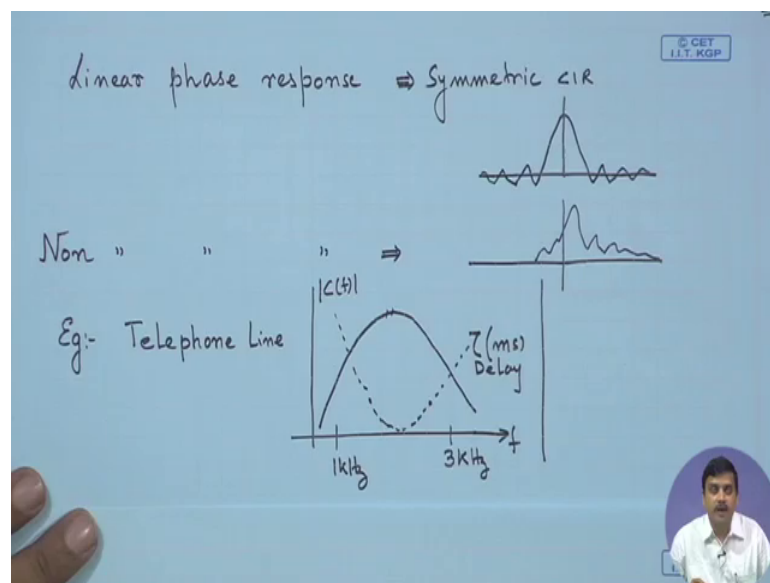 © CET
I.I.T. KGP
Linear phase response ⇒ Symmetric CIR
Non " " " ⇒
|C(f)|
Eg:- Telephone Line
τ(ms)
Delay
1kHz 3kHz f